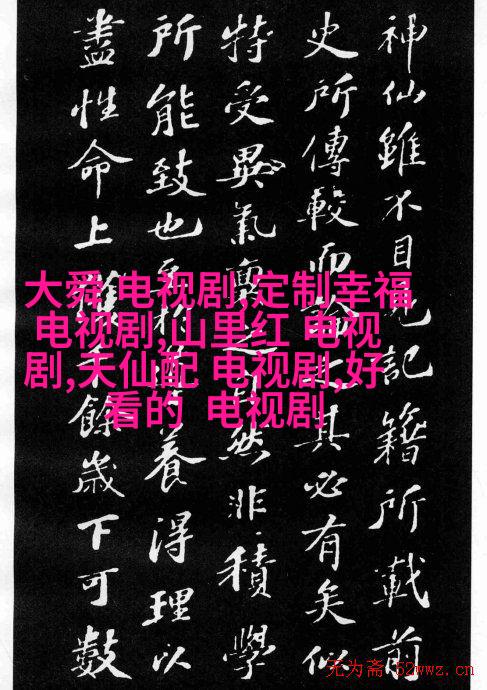 神仙雖不目見記籍所載前
史所傳較而論之其必有矣似
特受異氣稟之自然非積學
所能致也至於養得理以
盡性命上獲千餘歲下可數
大舜 电视剧,定制幸福
电视剧,山里红 电视
剧,天仙配 电视剧,好
看的 电视剧
无为斋 52wwz.cn